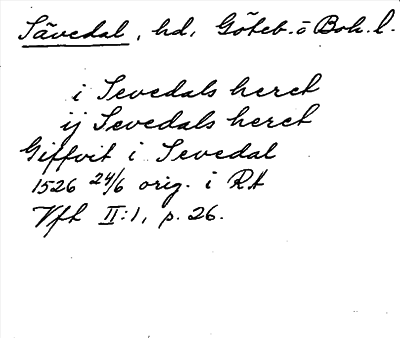 Sävedal, hd, Göteb. o Boh. l.
i Sevedals heret
ij Sevedals heret
Giffvit i Sevedal
1526 24/6 orig. i RA
Vfh II:1, p. 26.